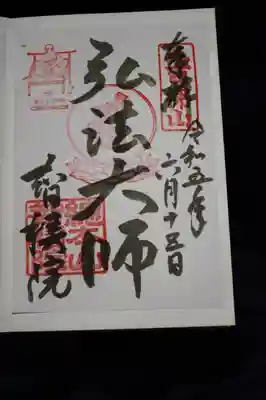 奉拝
令和五年
六月十五日
弘法大師
智積院